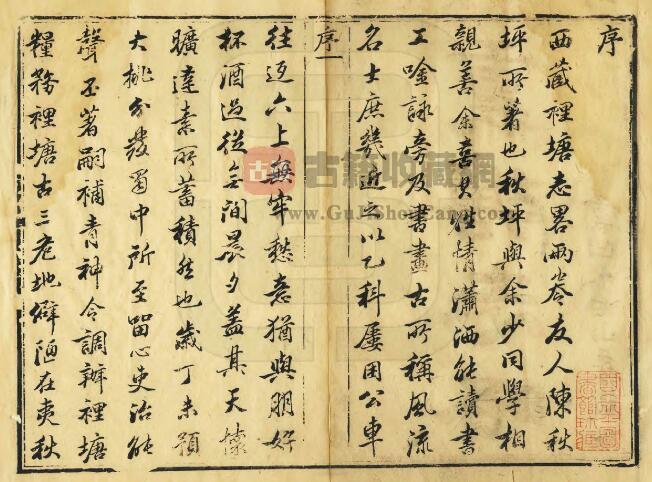 序
西藏裡塘志畧兩卷友人陳秋
坪所著也秋坪與余少同學相
親善余喜其性情瀟洒能讀書
工唫詠旁及書畫古所稱風流
名士庶幾近之以乙科屢困公車
序一
往返六上無牢愁意猶與朋好
杯酒過從無間晨夕蓋其天懷
曠達素所蓄積然也歲丁未預
大挑分發蜀中所至留心吏治能
聲丕著嗣補青神令調辦裡塘
糧務裡塘古三危地僻陋在夷狄
古籍收藏网